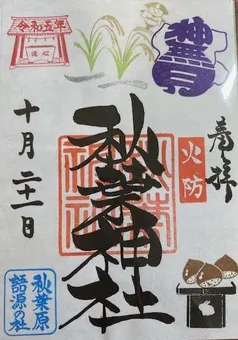 奉拝
火防
神無月
秋葉神社
令和五年
十月二十一日
秋葉原
語源の社